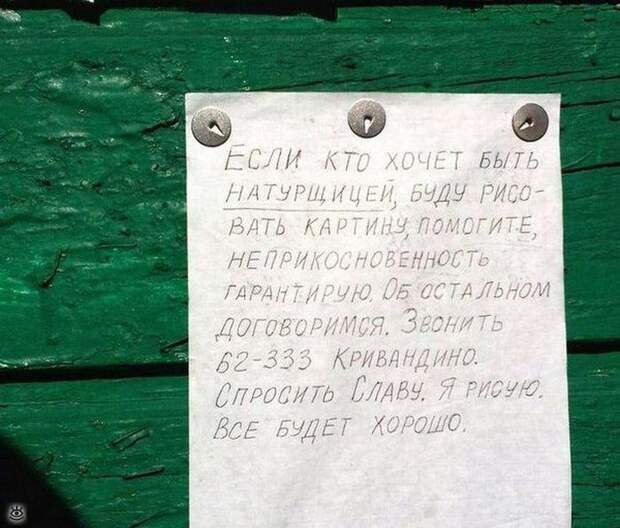 Если кто хочет быть
натурщицей, буду рисо-
вать картину, помогите,
неприкосновенность
гарантирую. Об остальном
договоримся. Звонить
62-333 Кривандино.
Спросить Славу. Я рисую.
Все будет хорошо.